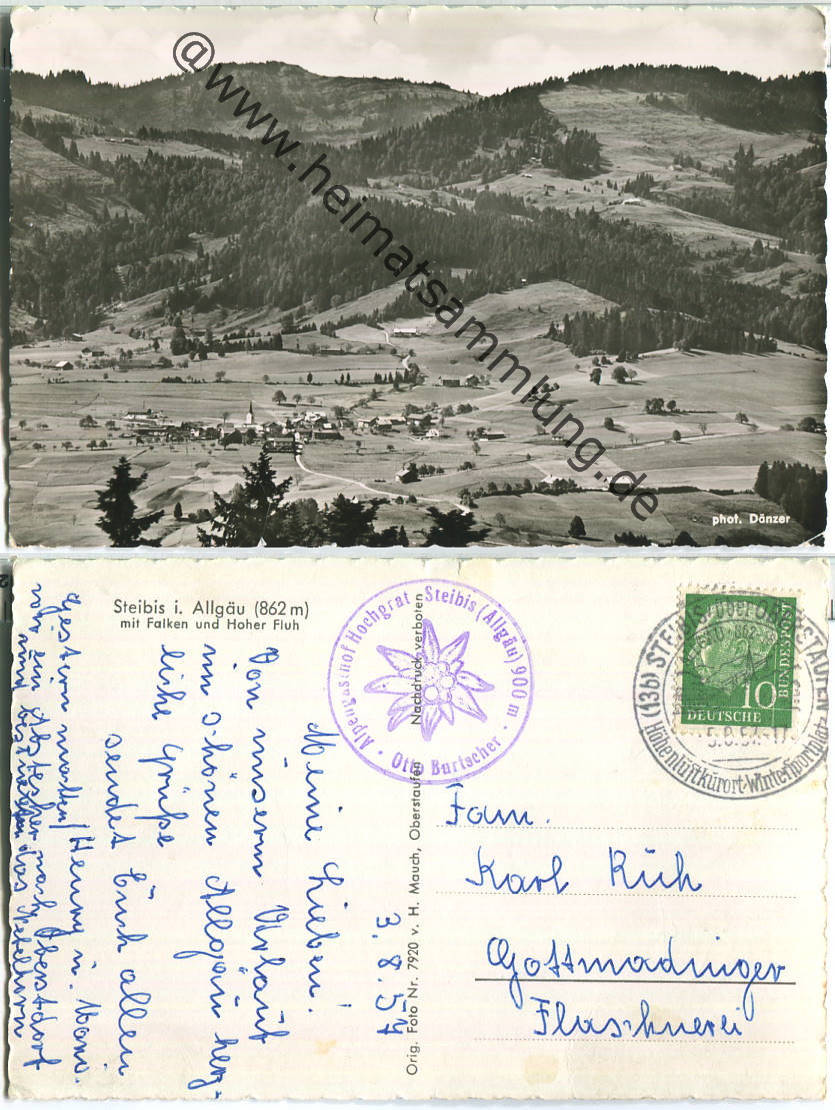 @www.heimatsammlung.de
phot. Dänzer
Steibis i. Allgäu (862 m)
mit Falken und Hoher Fluh
Alpengasthof Hochgrat - Steibis (Allgäu) 900 m
Otto Burtscher
Nachdruck verboten
Orig. Foto Nr. 7920 v. H. Mauch, Oberstaufen
(13b) STEIBIS über OBERSTAUFEN
Höhenluftkurort-Wintersportplatz
10
DEUTSCHE
BUNDESPOST
3.8.54
Meine Lieben!
Von unserm Urlaub
im schönen Allgäu herz-
liche Grüße
sendet Euch allen
Henny u.
Gestern machten
wir ein Abstecher nach Oberstdorf
und das Nebelhorn
Fam.
Karl Rüh
Gottmadinger
Flaschnerei